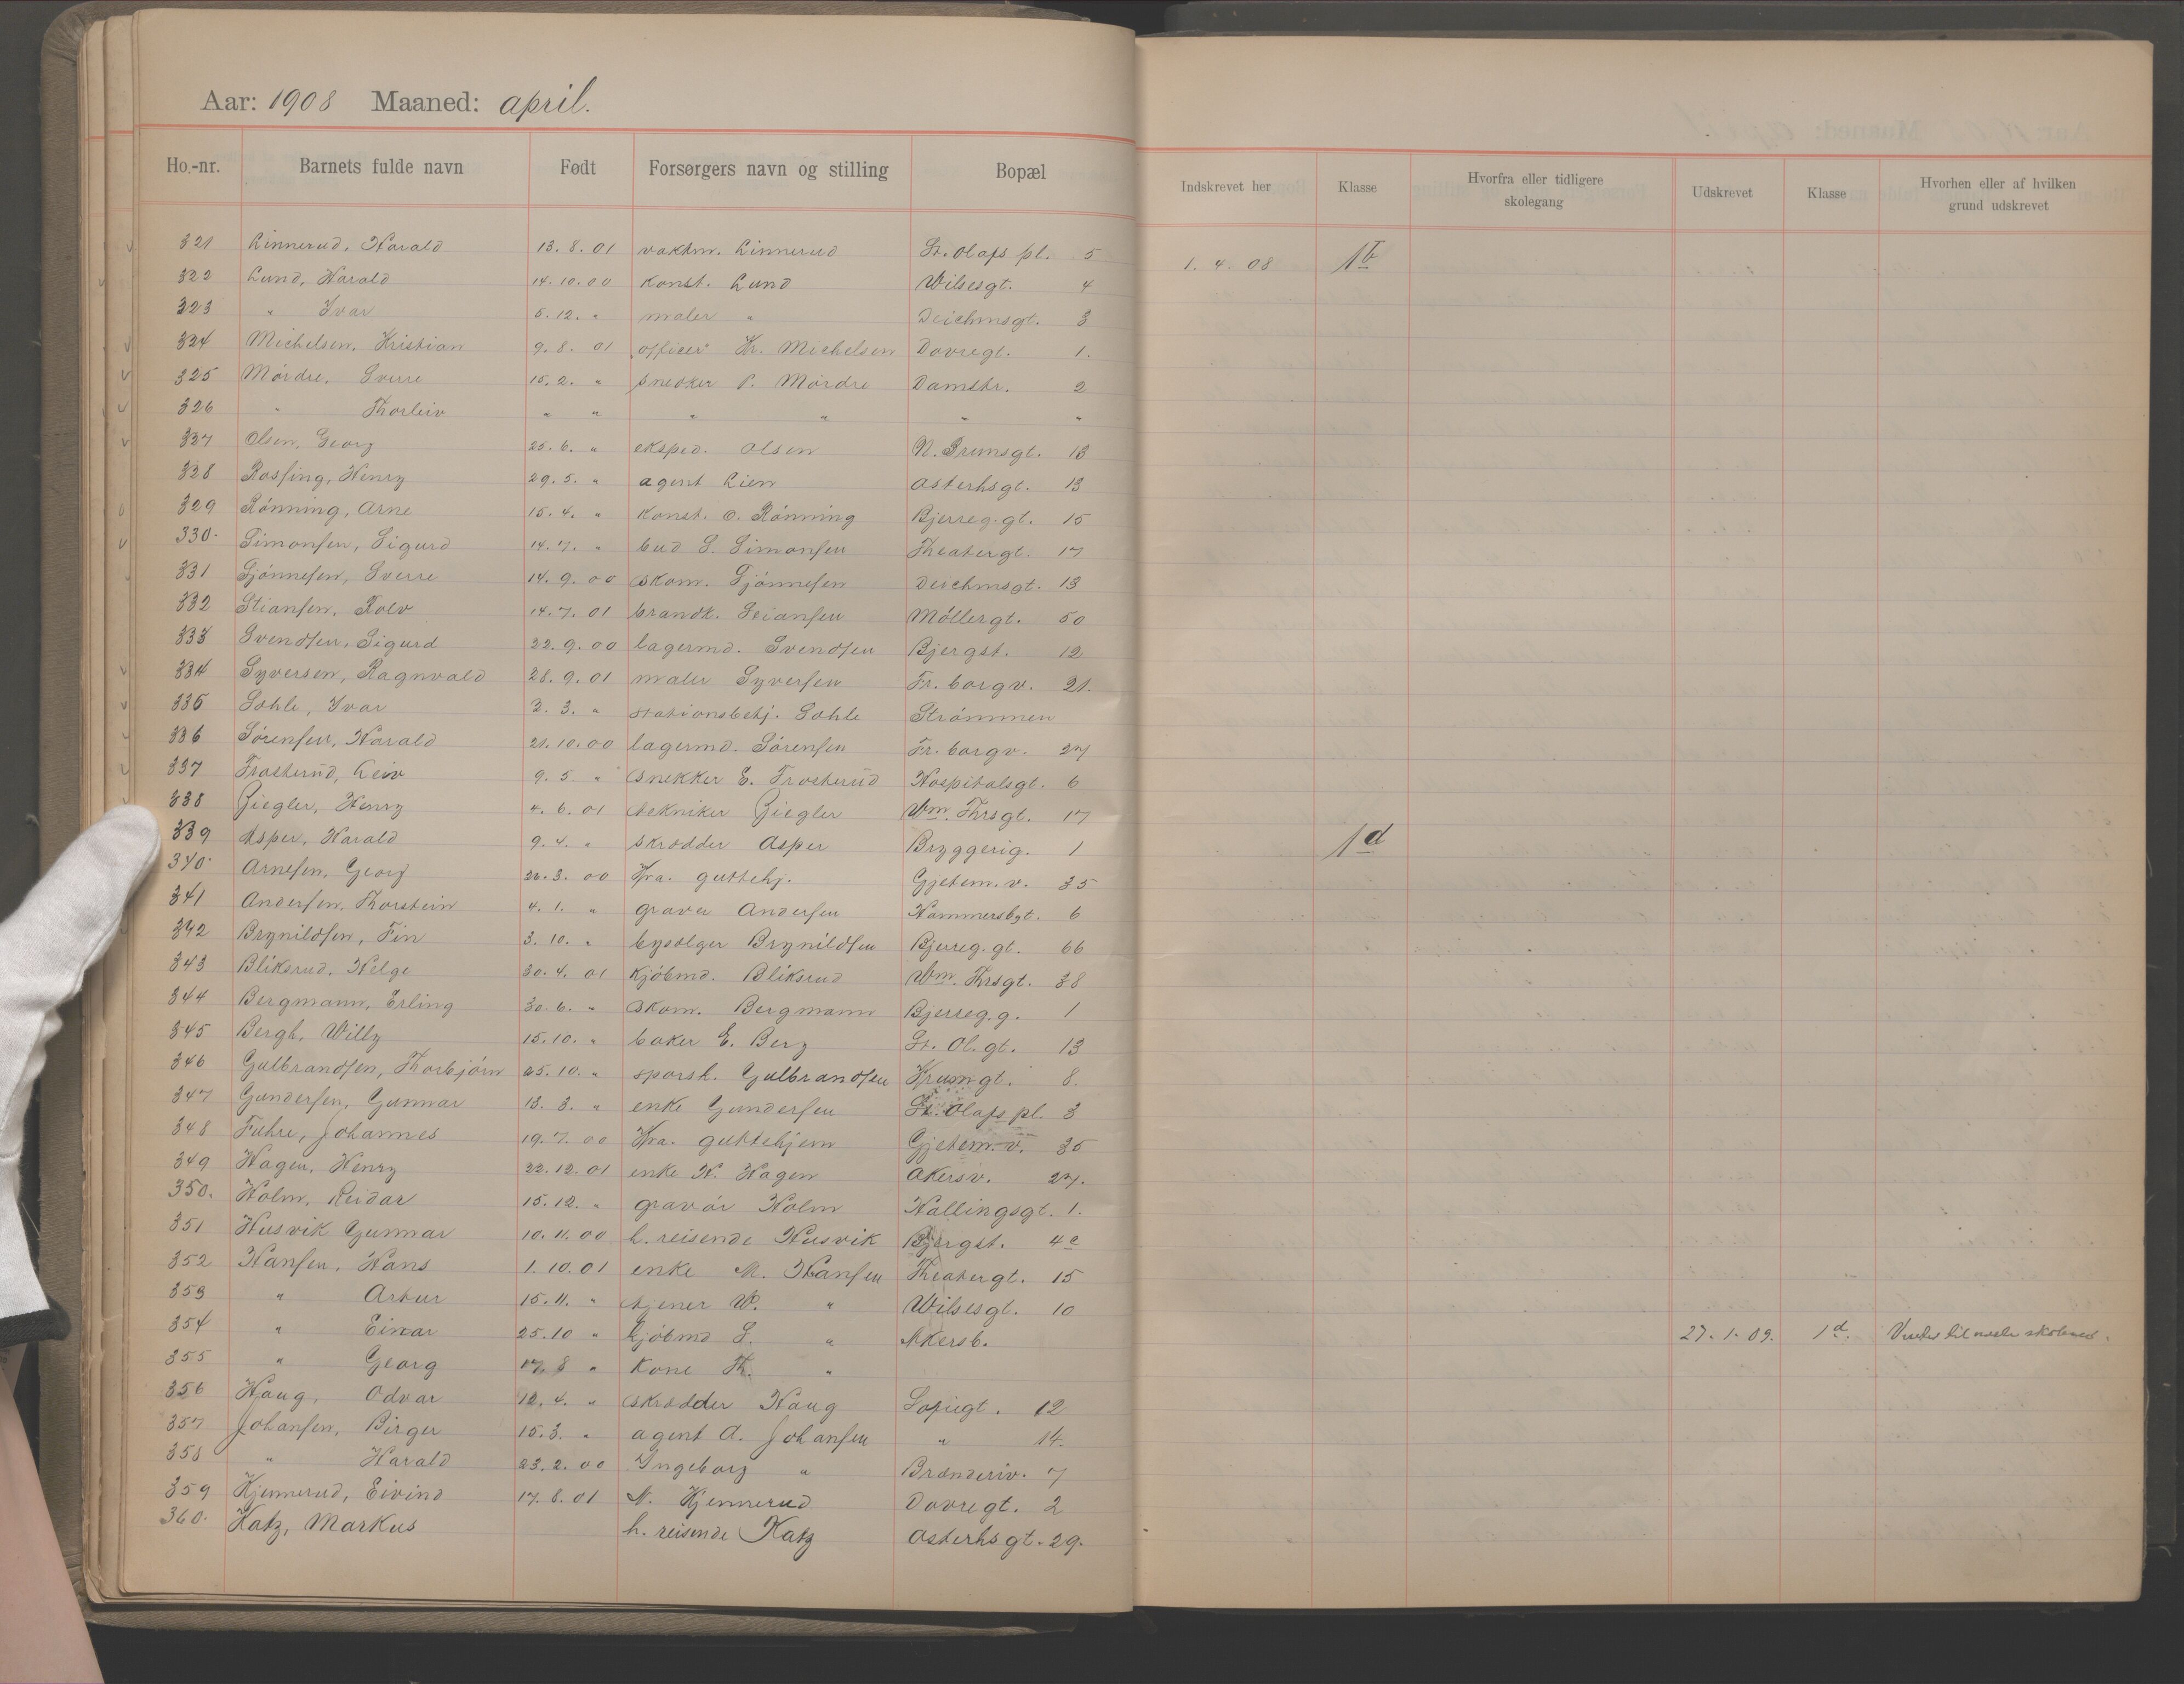 Aar: 1908 Maaned: april.
Ho.-nr. Barnets fulde navn Født Forsørgers navn og stilling Bopæl Indskrevet her Klasse Hvorfra eller tidligere skolegang Udskrevet Klasse Hvorhen eller af hvilken grund udskrevet
321 Linnerud, Harald 13. 8. 01 vaktm. Linnerud St. Olafs pl. 5 1. 4. 08 1b
322 Lund, Harald 14. 10. 00 konst. Lund Wilsesgt. 4
323 " Ivar 5. 12. " maler " Deichmsgt. 3
324 Michelsen, Kristian 9. 8. 01 officer Kr. Michelsen Dovregt. 1.
325 Mørdre, Sverre 15. 2. " snedker P. Mørdre Damstr. 2
326 " Thorleiv " " " " " "
327 Olsen, Georg 25. 6. " eksped. Olsen N. Brunsgt. 13
328 Rosfing, Henry 29. 5. " agent Lien Osterhsgt. 13
329 Rønning, Arne 15. 4. " konst. O. Rønning Bjerreg.gt. 15
330. Simonsen, Sigurd 14. 7. " bud S. Simonsen Theatergt. 17
331 Sjønnesen, Sverre 14. 9. 00 skom. Sjønnesen Deichmsgt. 13
332 Stiansen, Rolv 14. 7. 01 brandk. Stiansen Møllergt. 50
333 Svendsen, Sigurd 22. 9. 00 lagermd. Svendsen Bjergst. 12
334 Syversen, Ragnvald 28. 9. 01 maler Syversen Fr. borgv. 21.
335 Søhle, Ivar 3. 3. " stationsbetj. Søhle Strømmen
336 Sørensen, Harald 21. 10. 00 lagermd. Sørensen Fr. borgv. 27
337 Frosterud, Leiv 9. 5. " snekker E. Frosterud Hospitalsgt. 6
338 Ziegler, Henry 4. 6. 01 tekniker Ziegler Wm. Thrsgt. 17
339 Asper, Harald 9. 4. " skrædder Asper Bryggerig. 1 1d
340. Arnesen, Georg 3. 00 Kra. guttehj. Gjetem. v. 35
341 Andersen, Thorstein 4. 1. " graver Andersen Hammersbgt. 6
342 Brynildsen, Fin 3. 10. " bysælger Brynildsen Bjerreg. gt. 66
343 Bliksrud, Helge 30. 4. 01 kjøbmd. Bliksrud Wm. Thrsgt. 38
344 Bergmann, Erling 30. 6. " skom. Bergmann Bjerreg. g. 1
345 Bergh, Willy 15. 10. " baker E. Berg St. Ol. gt. 13
346 Gulbrandsen, Thorbjørn 25. 10. " sporsk. Gulbrandsen Krumgt. 8.
347 Gundersen, Gunnar 13. 3. " enke Gundersen St. Olafs pl. 3
348 Fuhre, Johannes 19. 7. 00 Kra. guttehjem Gjetem. v. 35
349 Hagen, Henry 22. 12. 01 enke H. Hagen Akersv. 27.
350. Holm, Reidar 15. 12. " gravør Holm Hallingsgt. 1.
351 Husvik Gunnar 10. 11. 00 h. reisende Husvik Bjergst. 4c
352 Hansen, Hans 1. 10. 01 enke M. Hansen Theatergt. 15
353 " Artur 15. 11. " tjener W. " Wilsesgt. 10
354 " Einar 25. 10 " kjøbmd S. " Akersb. 27. 1. 09. 1d.
355 " Georg 17. 8 " kone Th. "
356 Haug, Odvar 12. 4. " skrædder Haug Sofiegt. 12
357 Johansen, Birger 15. 3. " agent A. Johansen " 14.
358 " Harald 23. 2. 00 Ingeborg " Brænderiv. 7
359 Kjennerud, Eivind 17. 8. 01 N. Kjennerud Dovregt. 2
360. Katz, Markus h. reisende Katz Osterhsgt. 29.